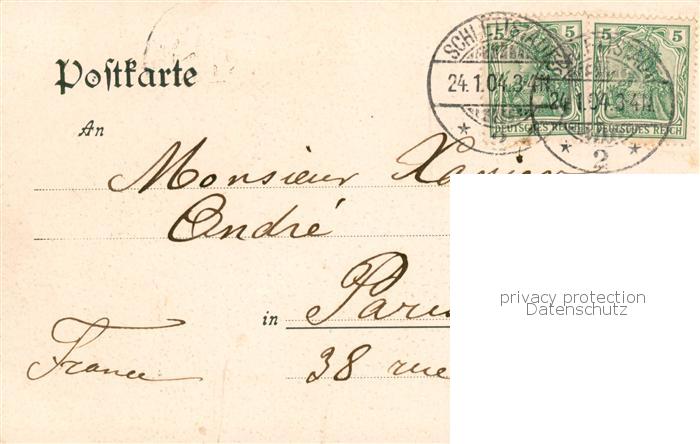 Postkarte
An
Monsieur Xavier
André
in Paris
38 rue
France
SCHLETTSTADT
24.1.04.3-4N
* 2 *
24.1.04.3-4N
* 2 *
5 5
DEUTSCHES REICH
5 5
DEUTSCHES REICH
privacy protection
Datenschutz